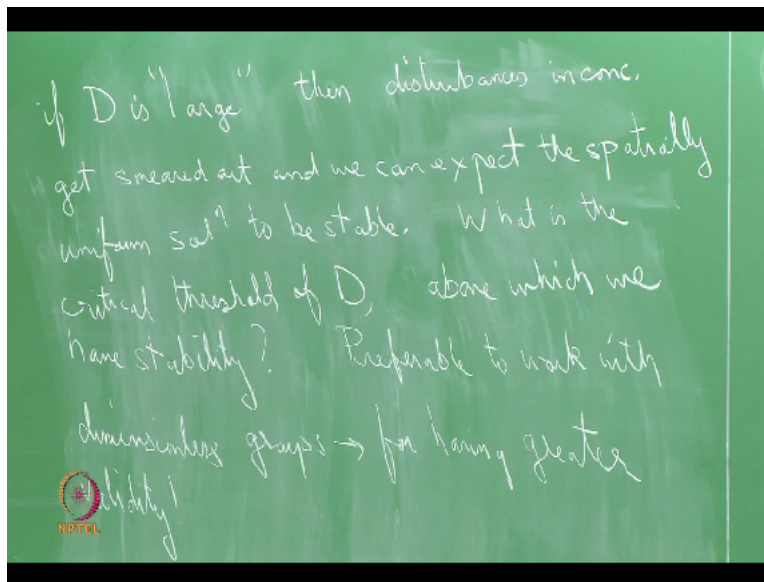 if D is "large" then disturbances in conc.
get smeared out and we can expect the spatially
uniform solⁿ to be stable. What is the
critical threshold of D, above which we
have stability? Preferable to work with
dimensionless groups → for having greater
validity!
NPTEL